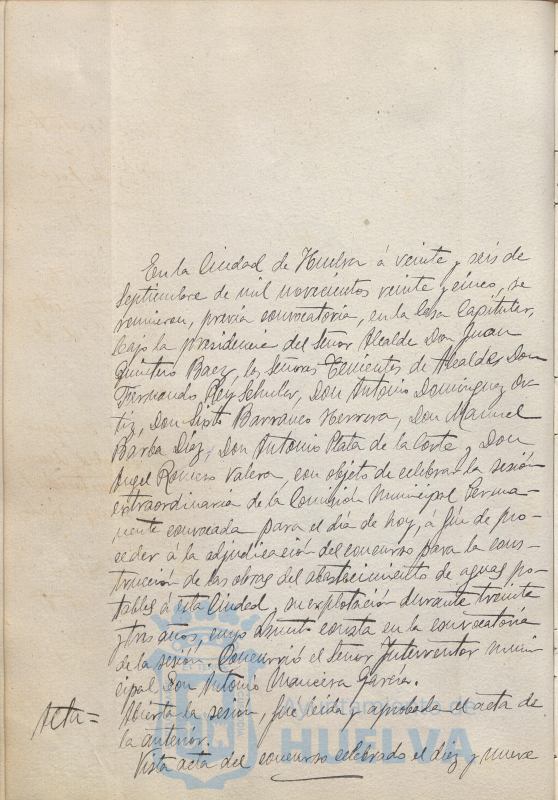 En la Ciudad de Huelva á veinte y seis de
Septiembre de mil novecientos veinte y cinco, se
reunieron, previa convocatoria, en la Casa Capitular,
bajo la presidencia del Señor Alcalde Don Juan
Quintero Baez, los Señores Tenientes de Alcalde Don
Fernando Rey Schuller, Don Antonio Domínguez Or-
tiz, Don Sixto Barranco Herrera, Don Manuel
Barba Díaz, Don Antonio Plata de la Corte y Don
Angel Romero Valera, con objeto de celebrar la sesión
extraordinaria de la Comisión Municipal Perma-
nente convocada para el día de hoy, á fin de pro-
ceder á la adjudicación del concurso para la cons-
trucción de las obras del abastecimiento de aguas po-
tables á esta Ciudad y su explotación durante treinta
y tres años, cuyo asunto consta en la convocatoria
de la sesión. Concurrió el Señor Interventor muni-
cipal Don Antonio Mancera García.
Acta = Abierta la sesión, fué leida y aprobada el acta de
la anterior.
Vista acta del concurso celebrado el diez y nueve
Ayuntamiento de
HUELVA